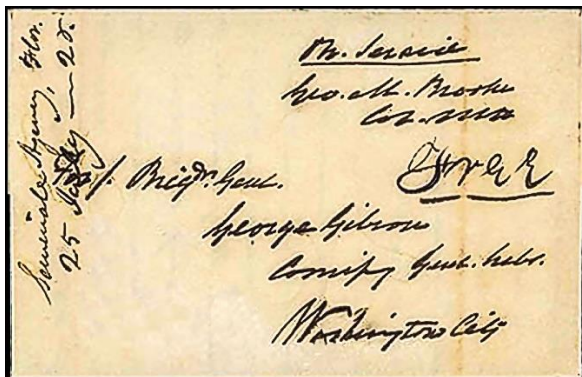 Seminole Agency, Flor.
25 July — 28.
On Service
Geo. M. Brooke
Free
Brigr. Genl.
George Gibson
Genl.
Washington City